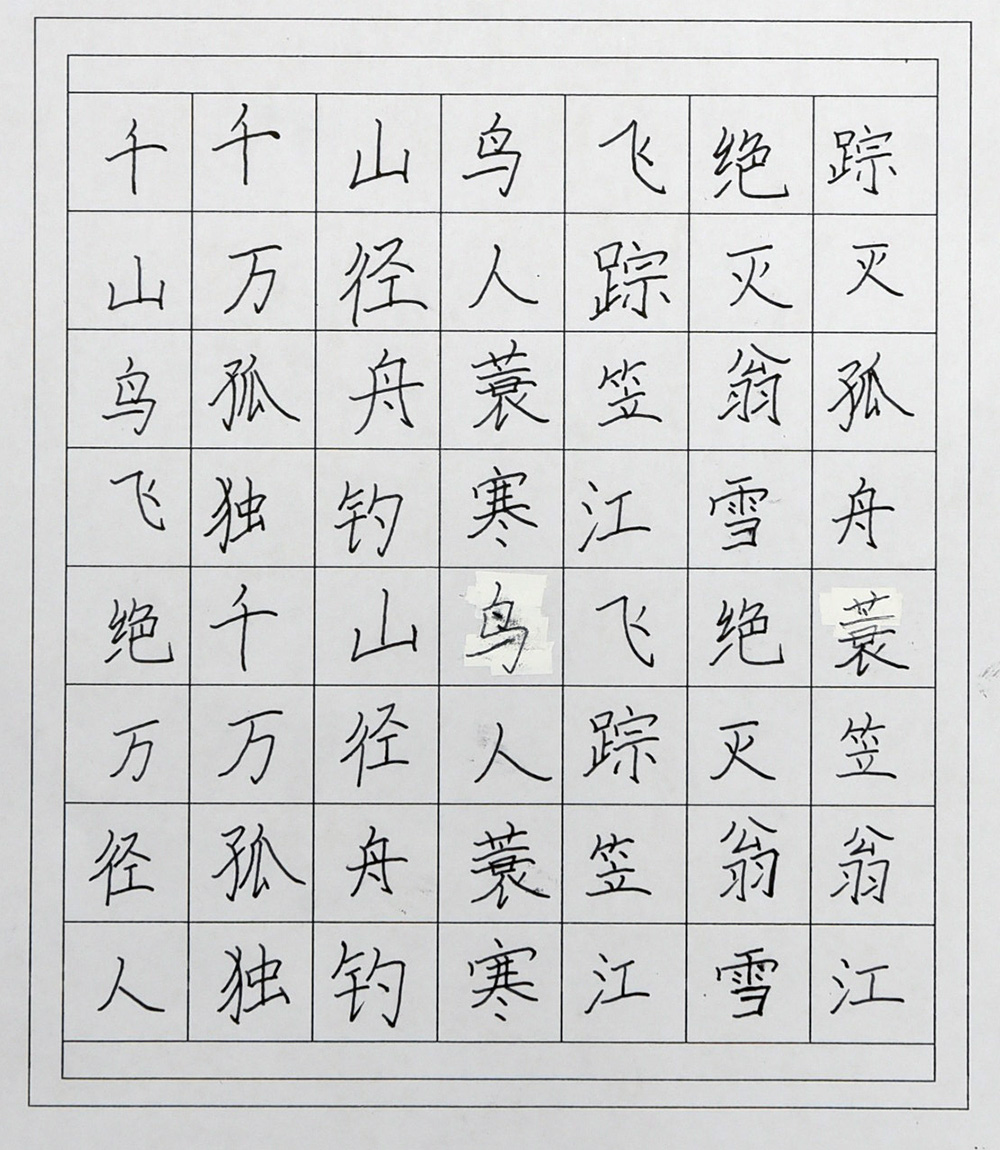 千千山鸟飞绝踪
山万径人踪灭灭
鸟孤舟蓑笠翁孤
飞独钓寒江雪舟
绝千山鸟飞绝蓑
万万径人踪灭笠
径孤舟蓑笠翁翁
人独钓寒江雪江